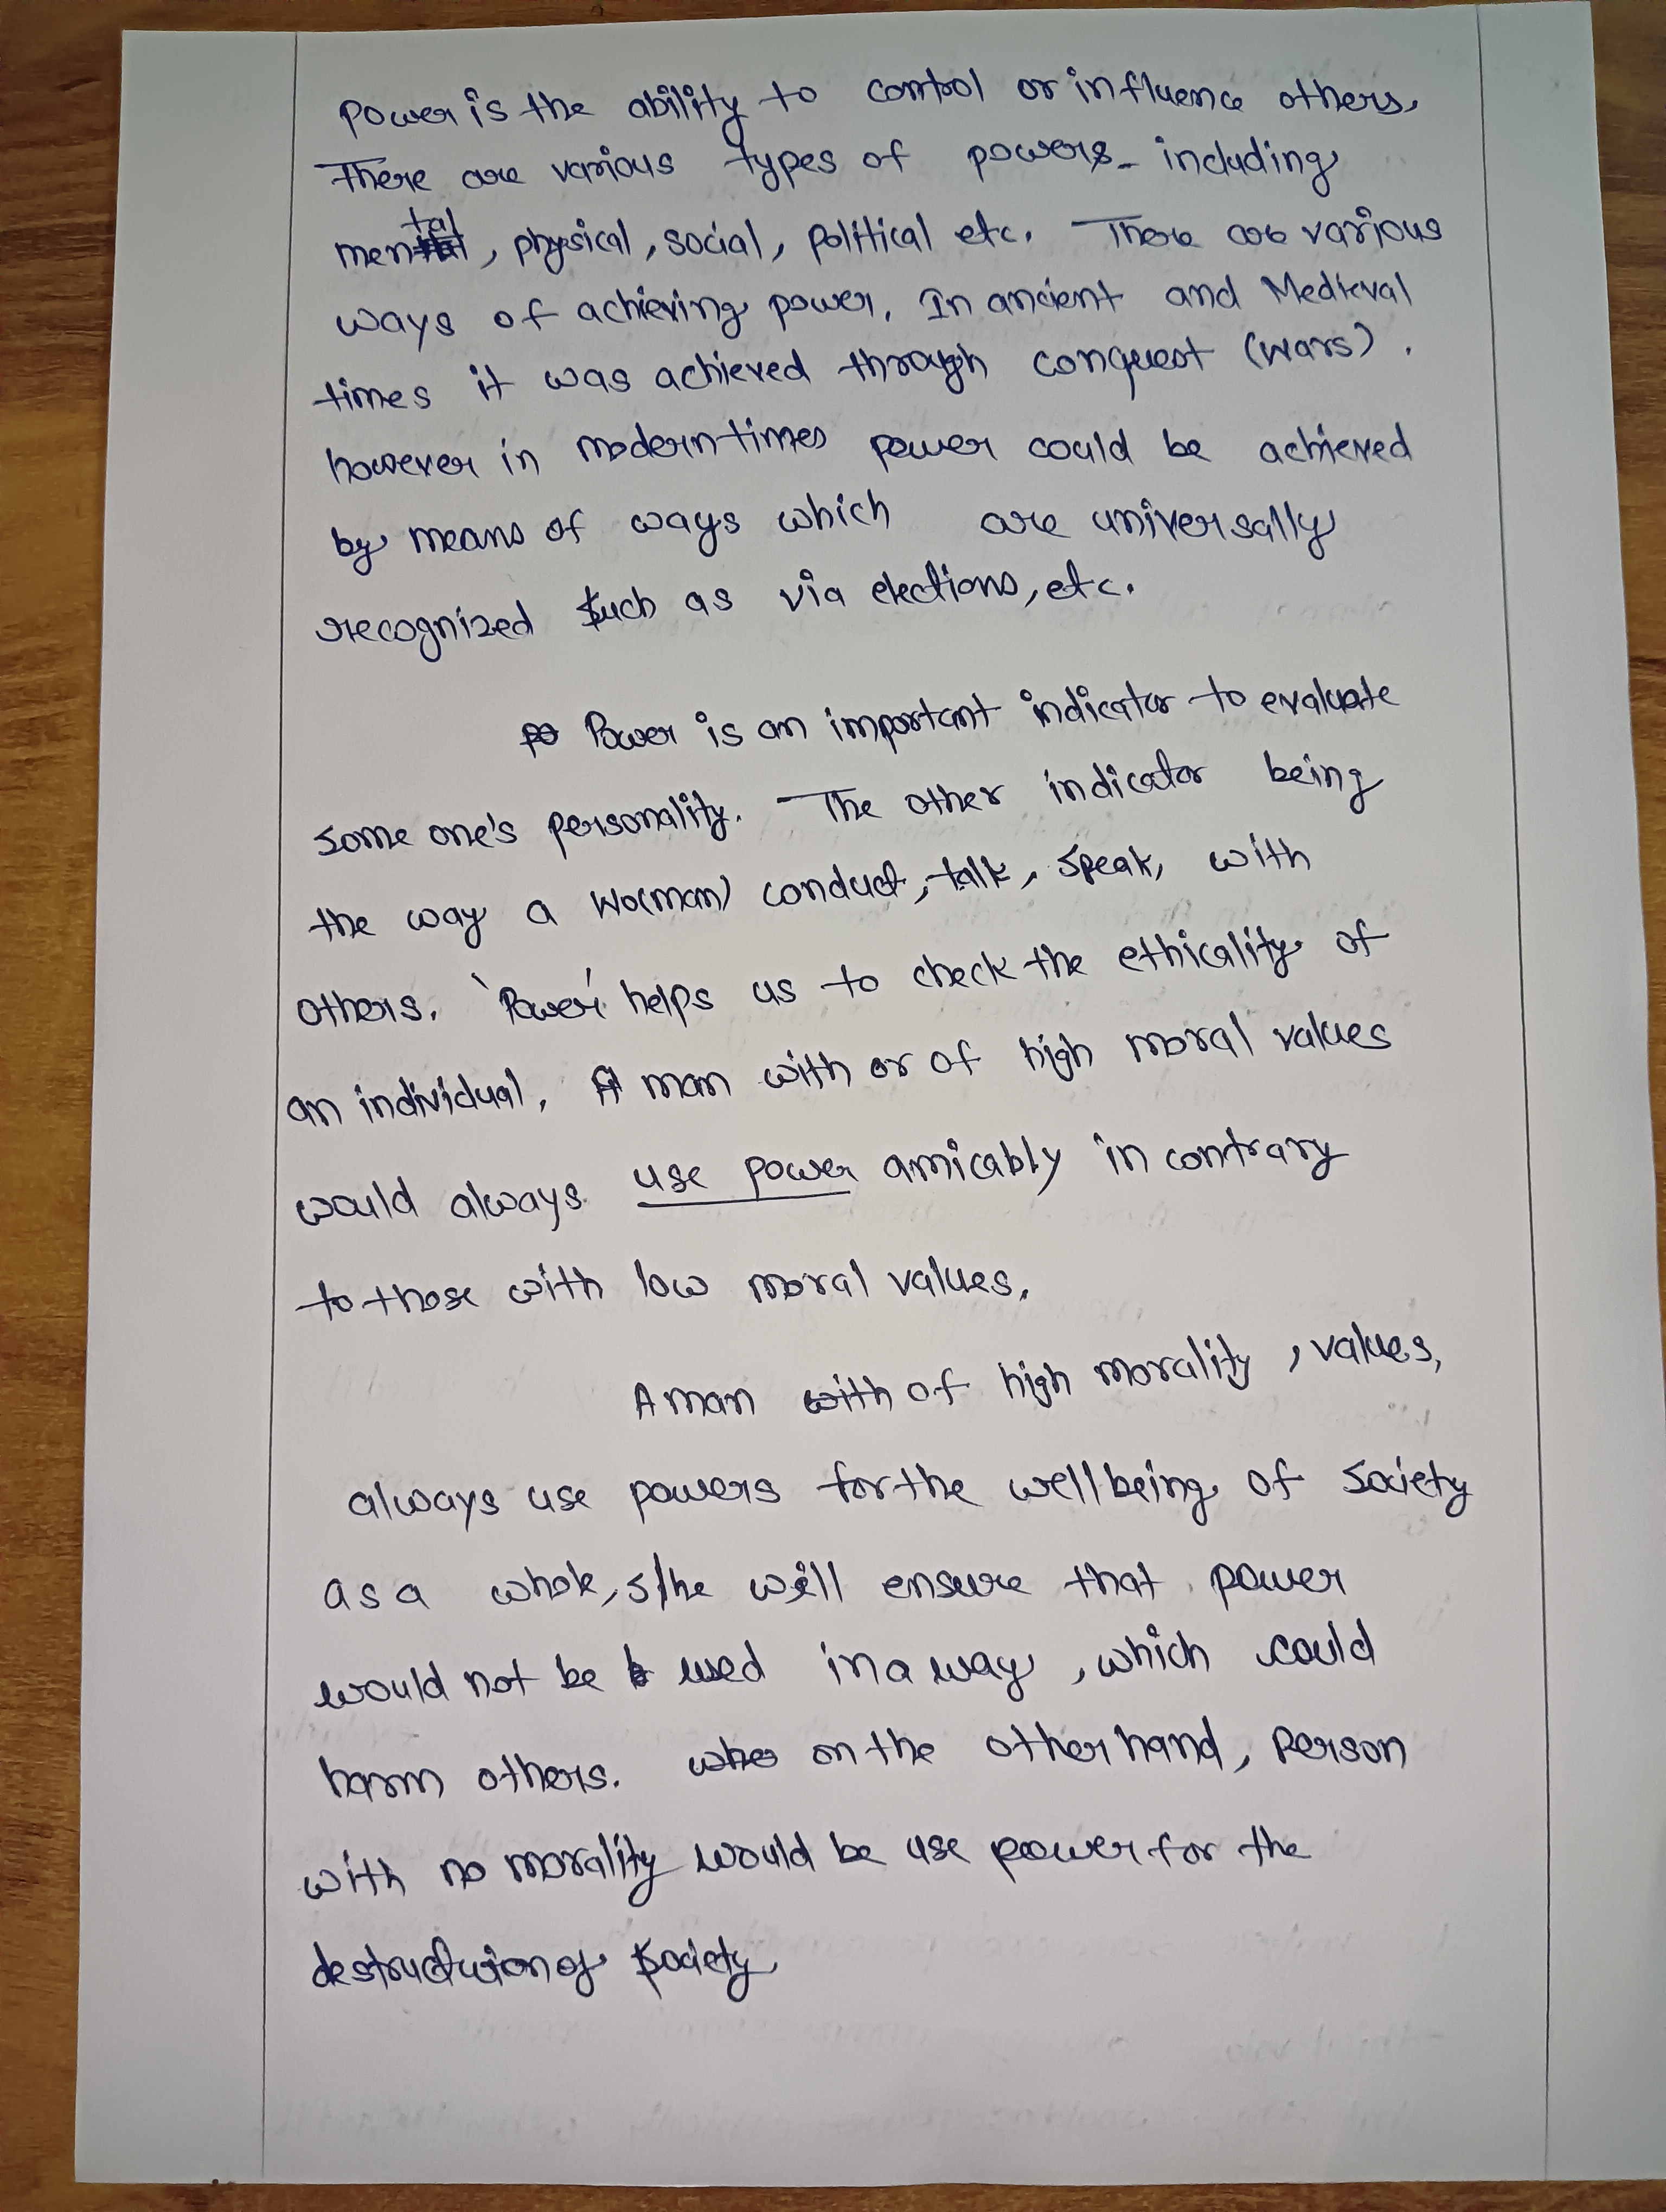 Power is the ability to control or influence others.
There are various types of powers including
mental, physical, social, political etc. There are various
ways of achieving power. In ancient and Medieval
times it was achieved through conquest (wars).
however in modern times power could be achieved
by means of ways which are universally
recognized such as via elections, etc.
Power is an important indicator to evaluate
some one's personality. The other indicator being
the way a Wo(man) conduct, talk, speak, with
others. 'Power' helps us to check the ethicality of
an individual. A man with or of high moral values
would always use power amicably in contrary
to those with low moral values.
A man with of high morality, values,
always use powers for the wellbeing of society
as a whole, s/he will ensure that power
would not be used in a way, which could
harm others. on the other hand, Person
with no morality would be use power for the
destruction of society